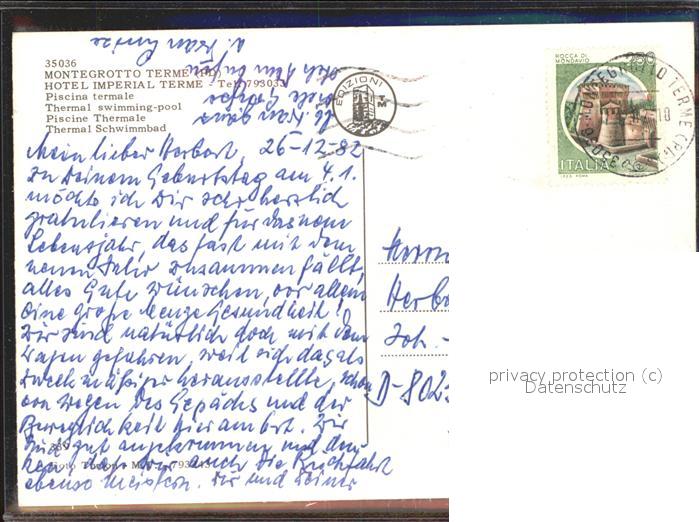 35036
MONTEGROTTO TERME (PD)
HOTEL IMPERIAL TERME - Tel. 793033
Piscina termale
Thermal swimming-pool
Piscine Thermale
Thermal Schwimmbad
Mein lieber Herbert, 26-12-82
zu Deinem Geburtstag am 4.1.
möchte ich Dir sehr herzlich
gratulieren und für das neue
Lebensjahr, das fast mit dem
neuen Jahr zusammenfällt,
alles Gute wünschen, vor allem
eine große Menge Gesundheit!
Wir sind natürlich doch mit dem
Wagen gefahren, weil sich das als
zweckmäßiger herausstellte, schon
von wegen des Gepäcks und der
Beweglichkeit hier am Ort. Wir
sind gut angekommen und
auch die Rückfahrt
ebenso meistern. Dir und Deiner
EDIZIONI
ROCCA DI
MONDAVIO
ITALIA
MONTEGROTTO TERME
Herrn
Joh. -
D-802
privacy protection (c)
Datenschutz